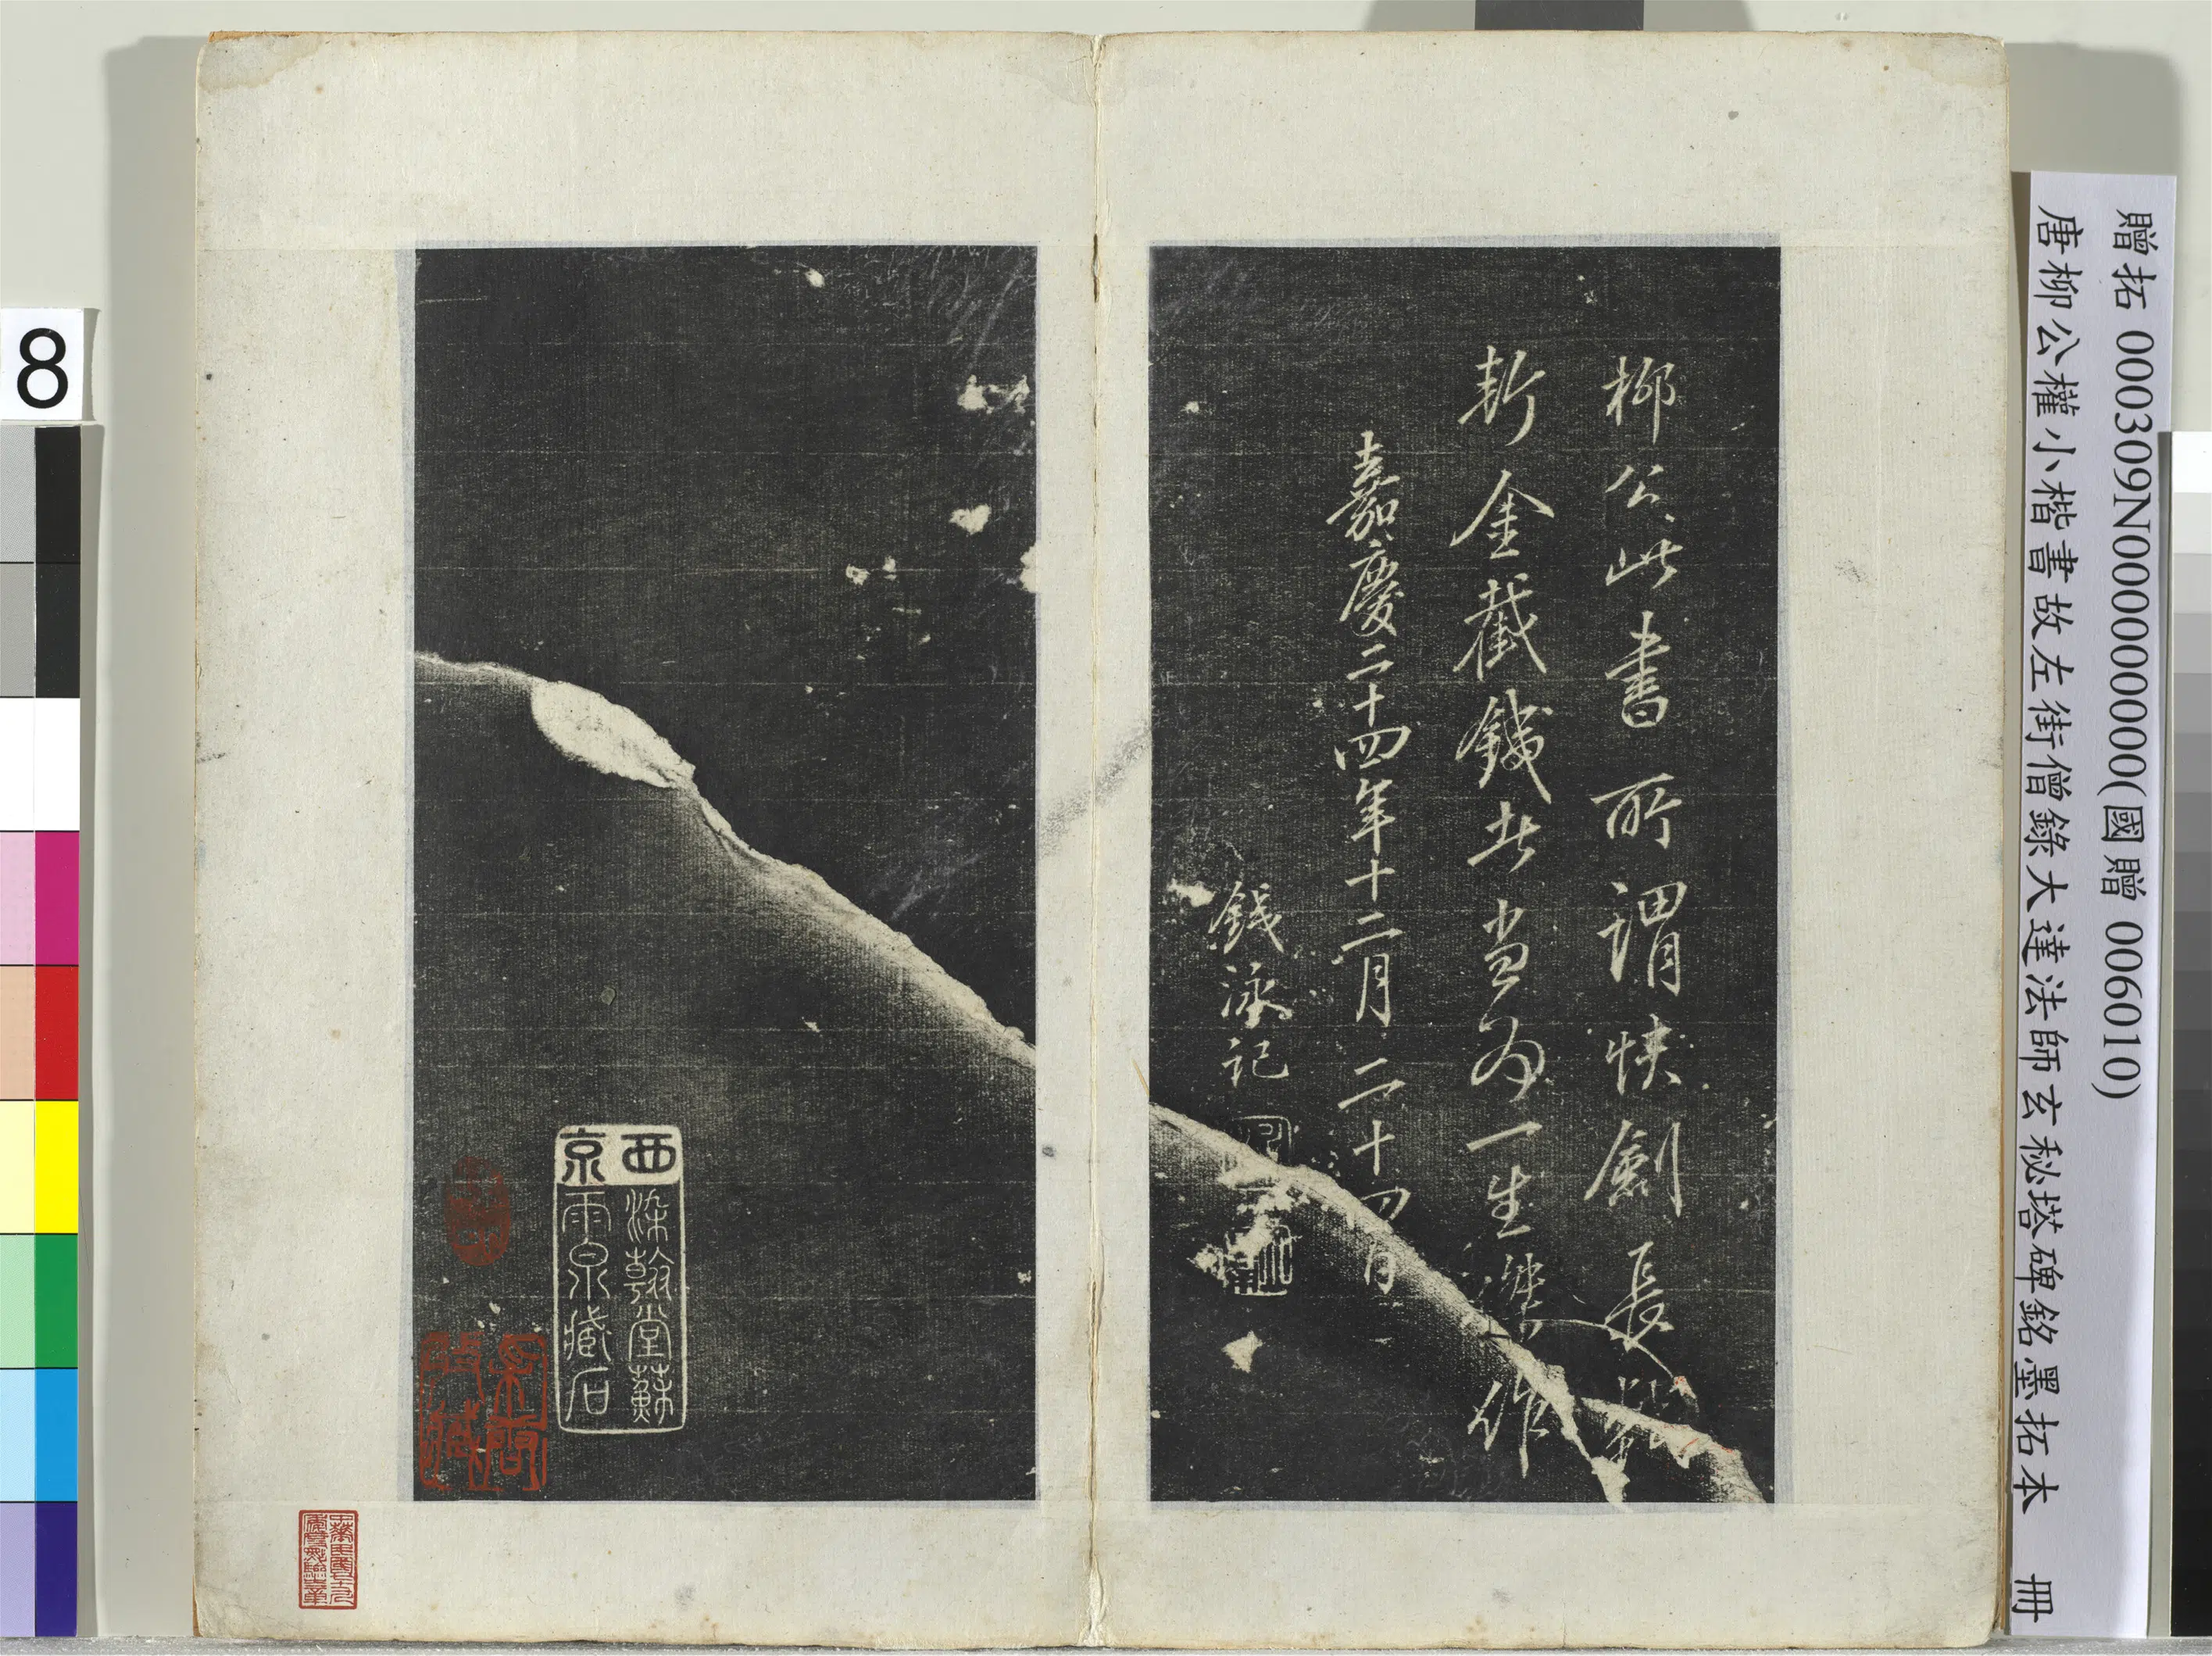 贈拓 000309N000000000(國贈 006010)
唐柳公權小楷書故左街僧錄大達法師玄秘塔碑銘墨拓本 冊
柳公此書所謂快劍長
斬金截鐵者當為一生傑作
嘉慶二十四年十二月二十四日
錢泳記
西京
染翰堂蘇
雨泉藏石
8